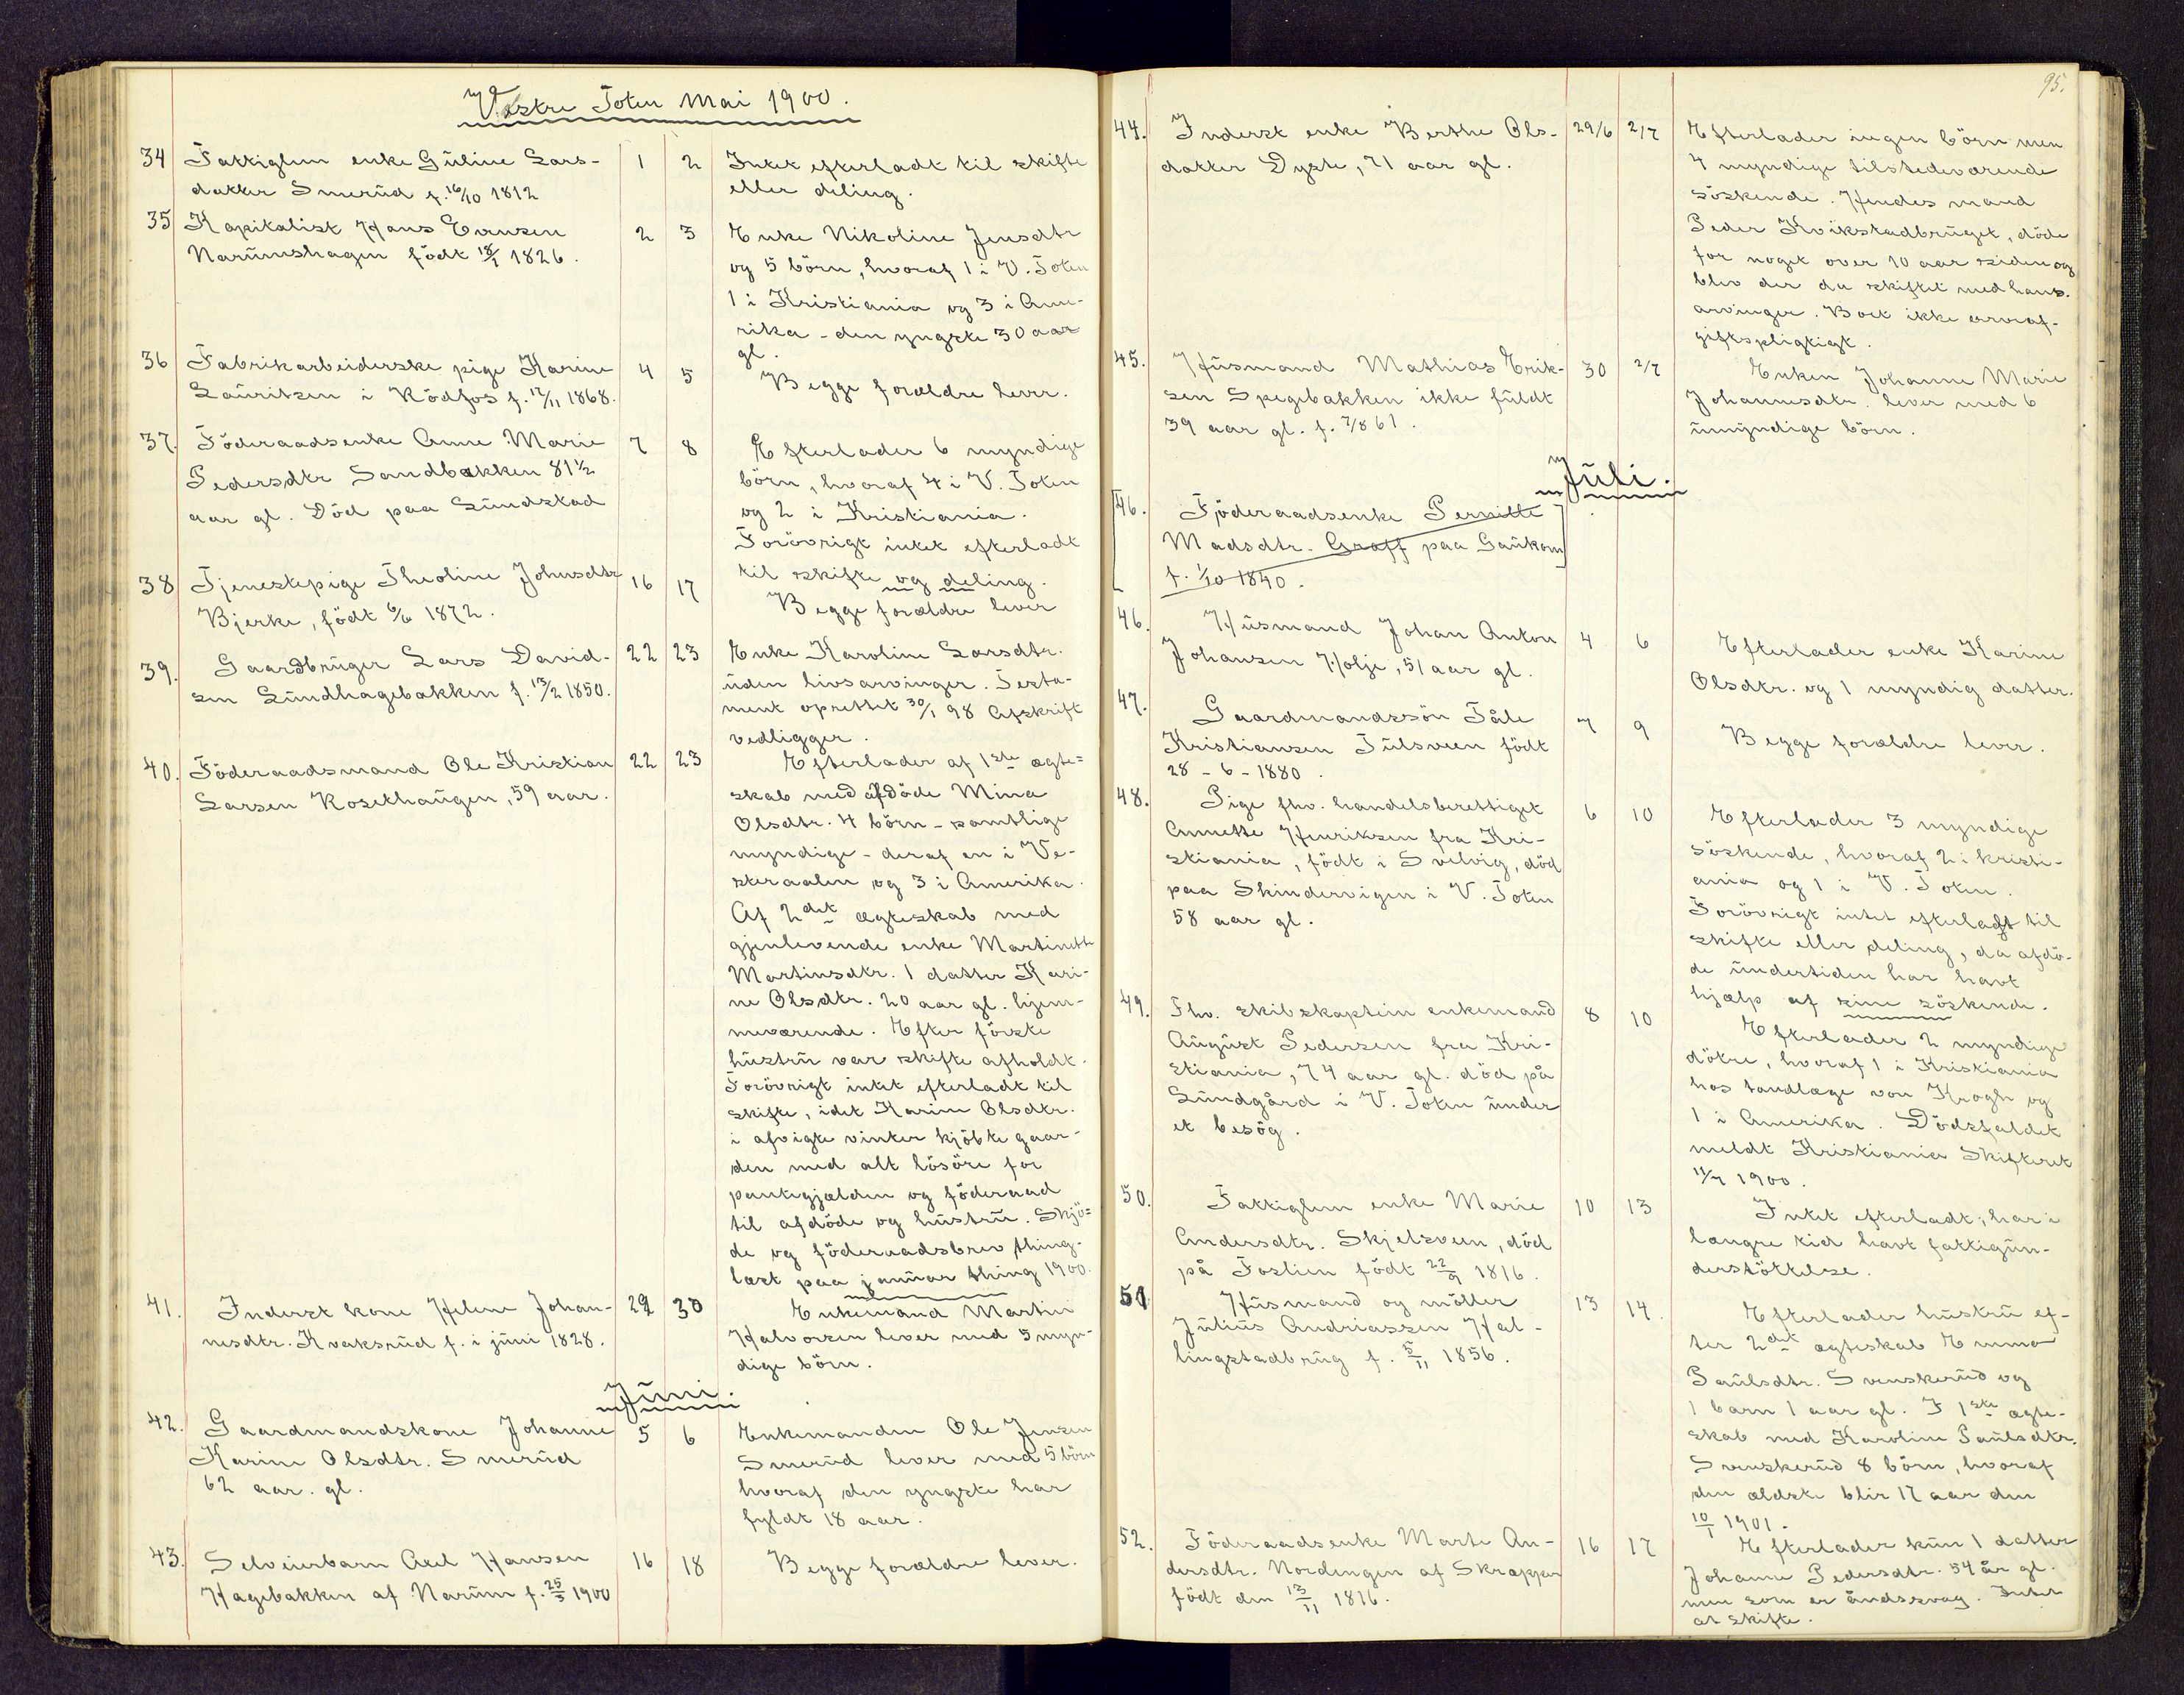 Vestre Toten Mai 1900.
34 Fattiglem enke Guline Lars-
datter Smerud f. 16/10 1812
1 2
Intet efterladt til skifte
eller deling.
35 Kapitalist Hans Evensen
Narumshagen födt 18/1 1826.
2 3
Enke Nikoline Jensdtr
og 5 börn, hvoraf 1 i V. Toten
1 i Kristiania og 3 i Ame-
rika - den yngste 30 aar
gl.
36 Fabrikarbeiderske pige Karine
Lauritsen i Rödfos f. 17/11 1868.
4 5
Begge forældre lever.
37. Föderaadsenke Anne Marie
Pedersdtr Sandbakken 81 1/2
aar gl. Död paa Sundstad
7 8
Efterlader 6 myndige
börn, hvoraf 4 i V. Toten
og 2 i Kristiania.
Forövrigt intet efterladt
til skifte og deling.
38 Tjenestepige Theoline Johnsdtr
Bjerke, födt 6/6 1872.
16 17
Begge forældre lever
39. Gaardbruger Lars David-
sen Lundhagebakken f. 13/2 1850.
22 23
Enke Karoline Larsdtr.
uden livsarvinger. Testa-
ment oprettet 30/1 98 Afskrift
vedligger.
40. Föderaadsmand Ole Kristian
Larsen Rosethaugen, 59 aar.
22 23
Efterlader af 1ste ægte=
skab med afdöde Mina
Olsdtr. 4 börn - samtlige
myndige - deraf en i Ve-
steraalen og 3 i Amerika.
Af 2det ægteskab med
gjenlevende enke Martinette
Martinsdtr. 1 datter Kari-
ne Olsdtr. 20 aar gl. hjem-
meværende. Efter förste
hustru var skifte afholdt.
Forövrigt intet efterladt til
skifte, idet Karine Olsdtr.
i afvigte vinter kjöbte gaar-
den med alt lösöre for
pantegjælden og föderaad
til afdöde og hustru. Skjö=
de og föderaadsbrev thing-
læst paa januar thing 1900.
41. Inderst kone Helene Johan-
nesdtr. Kvaksrud f. i juni 1828.
29 30
Enkemand Martin
Halvorsen lever med 5 myn-
dige börn.
Juni.
42. Gaardmandskone Johanne
Karine Olsdtr. Smerud
62 aar. gl.
5 6
Enkemanden Ole Jensen
Smerud lever med 5 börn
hvoraf den yngste har
fyldt 18 aar.
43. Selveierbarn Axel Hansen
Hagebakken af Narum f. 25/3 1900
16 18
Begge forældre lever.
95.
44. Inderst enke Berthe Ols-
datter Dyste, 71 aar gl.
29/6 2/7
Efterlader ingen börn men
4 myndige tilstedeværende
söskende. Hendes mand
Peder Kvikstadbruget, döde
for noget over 10 aar siden og
blev der da skiftet med hans
arvinger. Boet ikke arveaf-
giftspligtigt.
45. Husmand Mathias Erik-
sen Spegebakken ikke fuldt
39 aar gl. f. 7/8 61.
30 2/7
Enken Johanne Marie
Johannesdtr. lever med 6
umyndige börn.
Juli.
46. Föderaadsenke Pernille
Madsdtr. Graff paa Gaukom
f. 1/10 1840.
46. Husmand Johan Anton
Johansen Holje, 51 aar gl.
4 6
Efterlader enke Karine
Olsdtr. og 1 myndig datter.
47. Gaardmandssön Tåle
Kristiansen Tulsveen födt
28 - 6 - 1880.
7 9
Begge forældre lever.
48. Pige fhv. handelsberettiget
Annette Henriksen fra Kri-
stiania, födt i Svelvig, död
paa Skindervigen i V. Toten
58 aar gl.
6 10
Efterlader 3 myndige
söskende, hvoraf 2 i kristi-
ania og 1 i V. Toten.
Forövrigt intet efterladt til
skifte eller deling, da afdö-
de undertiden har havt
hjælp af sine söskende.
49. Fhv. skibskaptein enkemand
August Pedersen fra Kri-
stiania, 74 aar gl. död på
Sundgård i V. Toten under
et besög.
8 10
Efterlader 2 myndige
dötre, hvoraf 1 i Kristiania
hos tandlæge von Krogh og
1 i Amerika. Dödsfaldet
meldt Kristiania Skifteret
11/7 1900.
50. Fattiglem enke Marie
Andersdtr. Skjelsveen, död
på Foslien födt 22/9 1816.
10 13
Intet efterladt; har i
længre tid havt fattigun-
derstöttelse.
51 Husmand og möller
Julius Andriassen Hal-
lingstadbrug f. 5/11 1856.
13 14.
Efterlader hustru ef-
ter 2det ægteskab Emma
Paulsdtr. Svenskerud og
1 barn 1 aar gl. I 1ste ægte-
skab med Karoline Paulsdtr.
Svenskerud 8 börn, hvoraf
den ældste blir 17 aar den
10/1 1901.
52. Föderaadsenke Marte An-
dersdtr. Nordengen af Skrapper
födt den 13/11 1816.
16 17
Efterlader kun 1 datter
Johanne Pedersdtr. 54 år gl.
men som er åndssvag. Intet
at skifte.